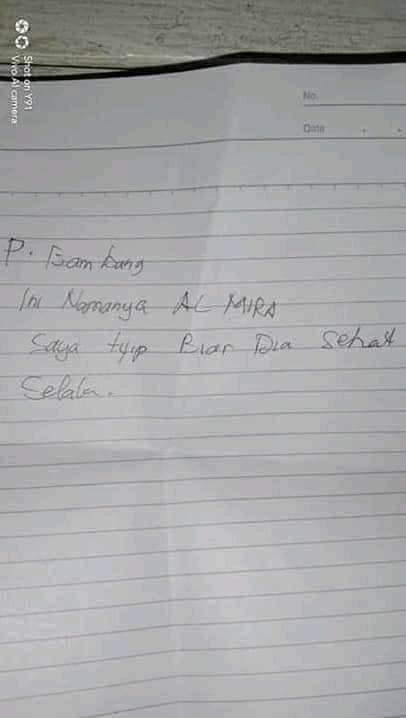 Shot on Y91
Vivo AI camera
No.
Date
P. Bambang
Ini Namanya AL MIRA
Saya Biar Dia Sehat
Selalu.